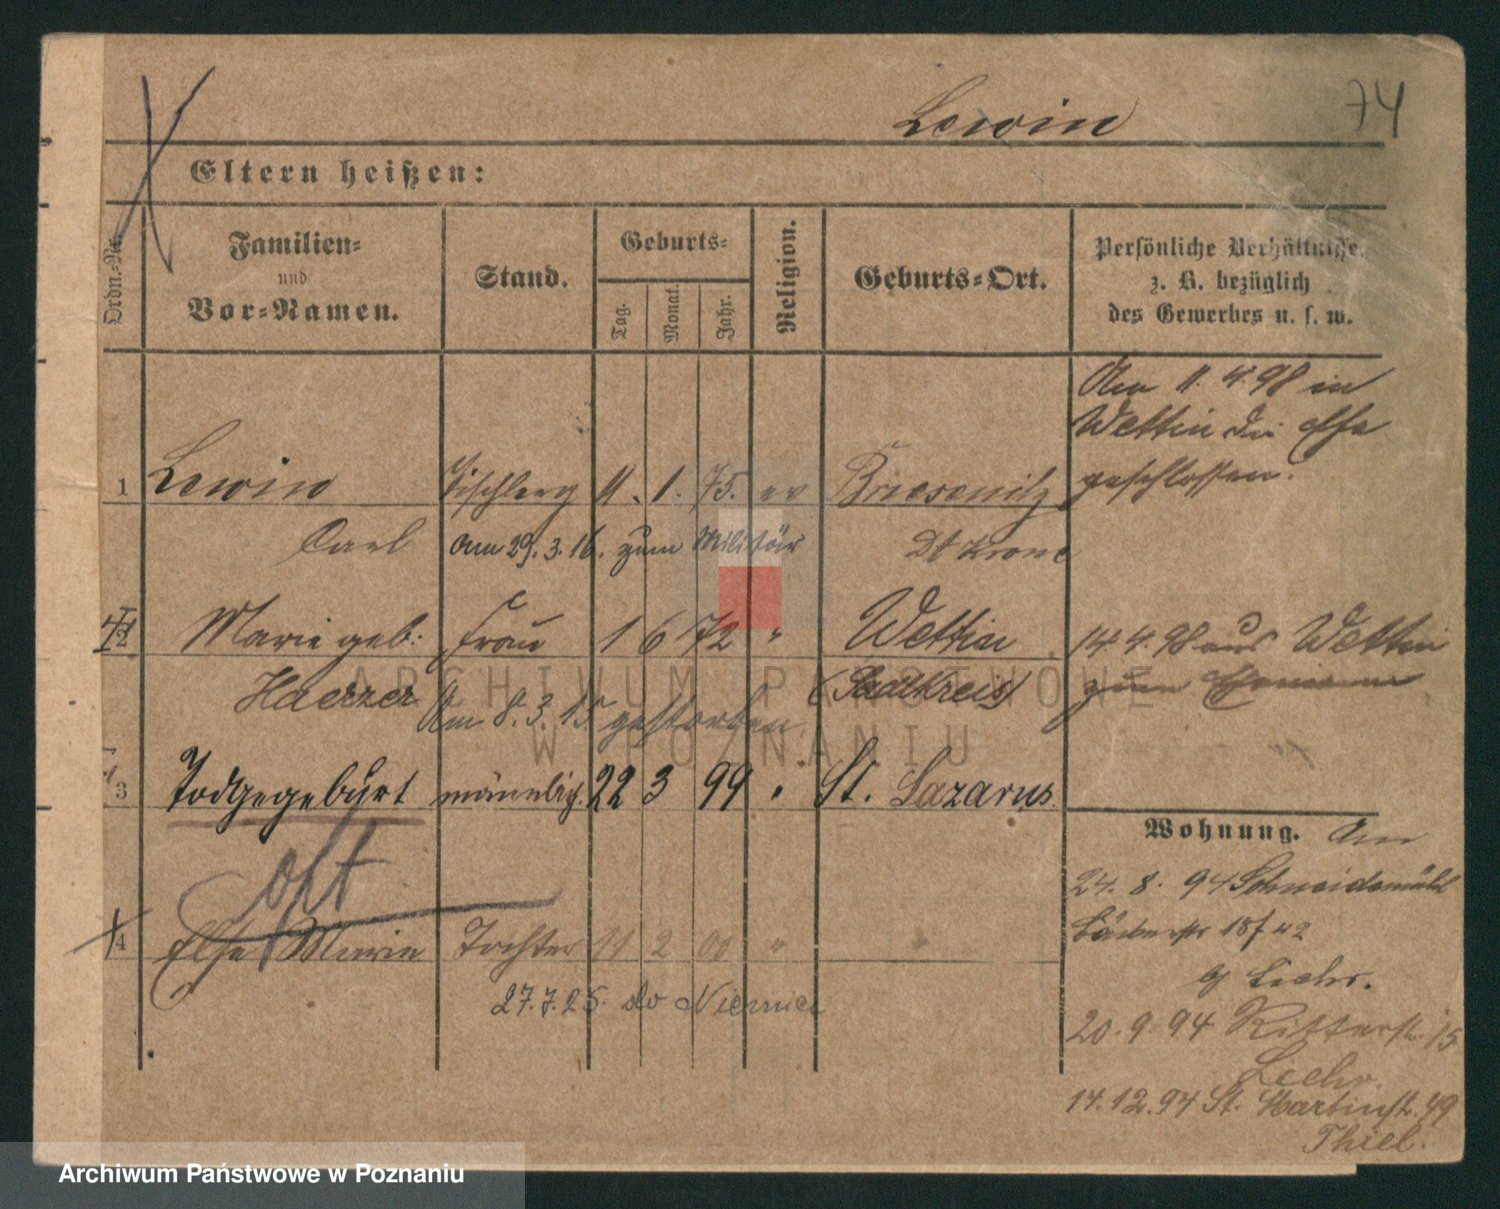 Lewin 74
Eltern heißen:
Ordn.-Nr.
Familien-
und
Vor-Namen.
Stand.
Geburts-
Tag.
Monat.
Jahr.
Religion.
Geburts-Ort.
Persönliche Verhältnisse,
z. B. bezüglich
des Gewerbes u. s. w.
Am 11.4.98 in
Wettin die Ehe
geschlossen.
1 Lewin Tischlerg 11. 1. 75. ev Briesenitz
Carl Am 29.3.16. zum Militär Dt Krone
2 Marie geb: Frau 1 6 72 " Wettin
14.4.98 aus Wettin
Haerzer (Saalkreis)
zum
Am 8.3.15 gestorben.
3 Todtgeburt männlich. 22 3 99 " St. Lazarus
Wohnung. Am
24. 8. 94 Schneidemühl
18
4 Else Marie Tochter 11 2 00 " "
Lichr.
27.7.25. do Niemiec
20.9.94 Ritterstr. 15
Lechr.
14.12.94 St. Martinstr. 49
Thiel.
ARCHIWUM PAŃSTWOWE
W POZNANIU
Archiwum Państwowe w Poznaniu